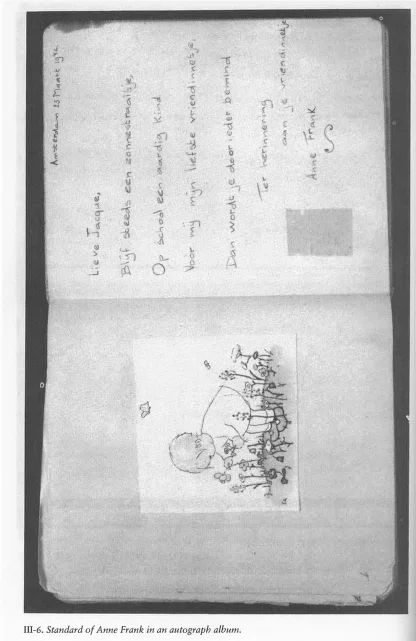 Amsterdam 23 Maart 1942
Lieve Jacque,
Blijf steeds een zonnestraaltje,
Op school een aardig kind
Voor mij mijn liefste vriendinnetje,
Dan wordt je door ieder bemind
Ter herinnering
aan je vriendinnetje
Anne Frank
III-6. Standard of Anne Frank in an autograph album.